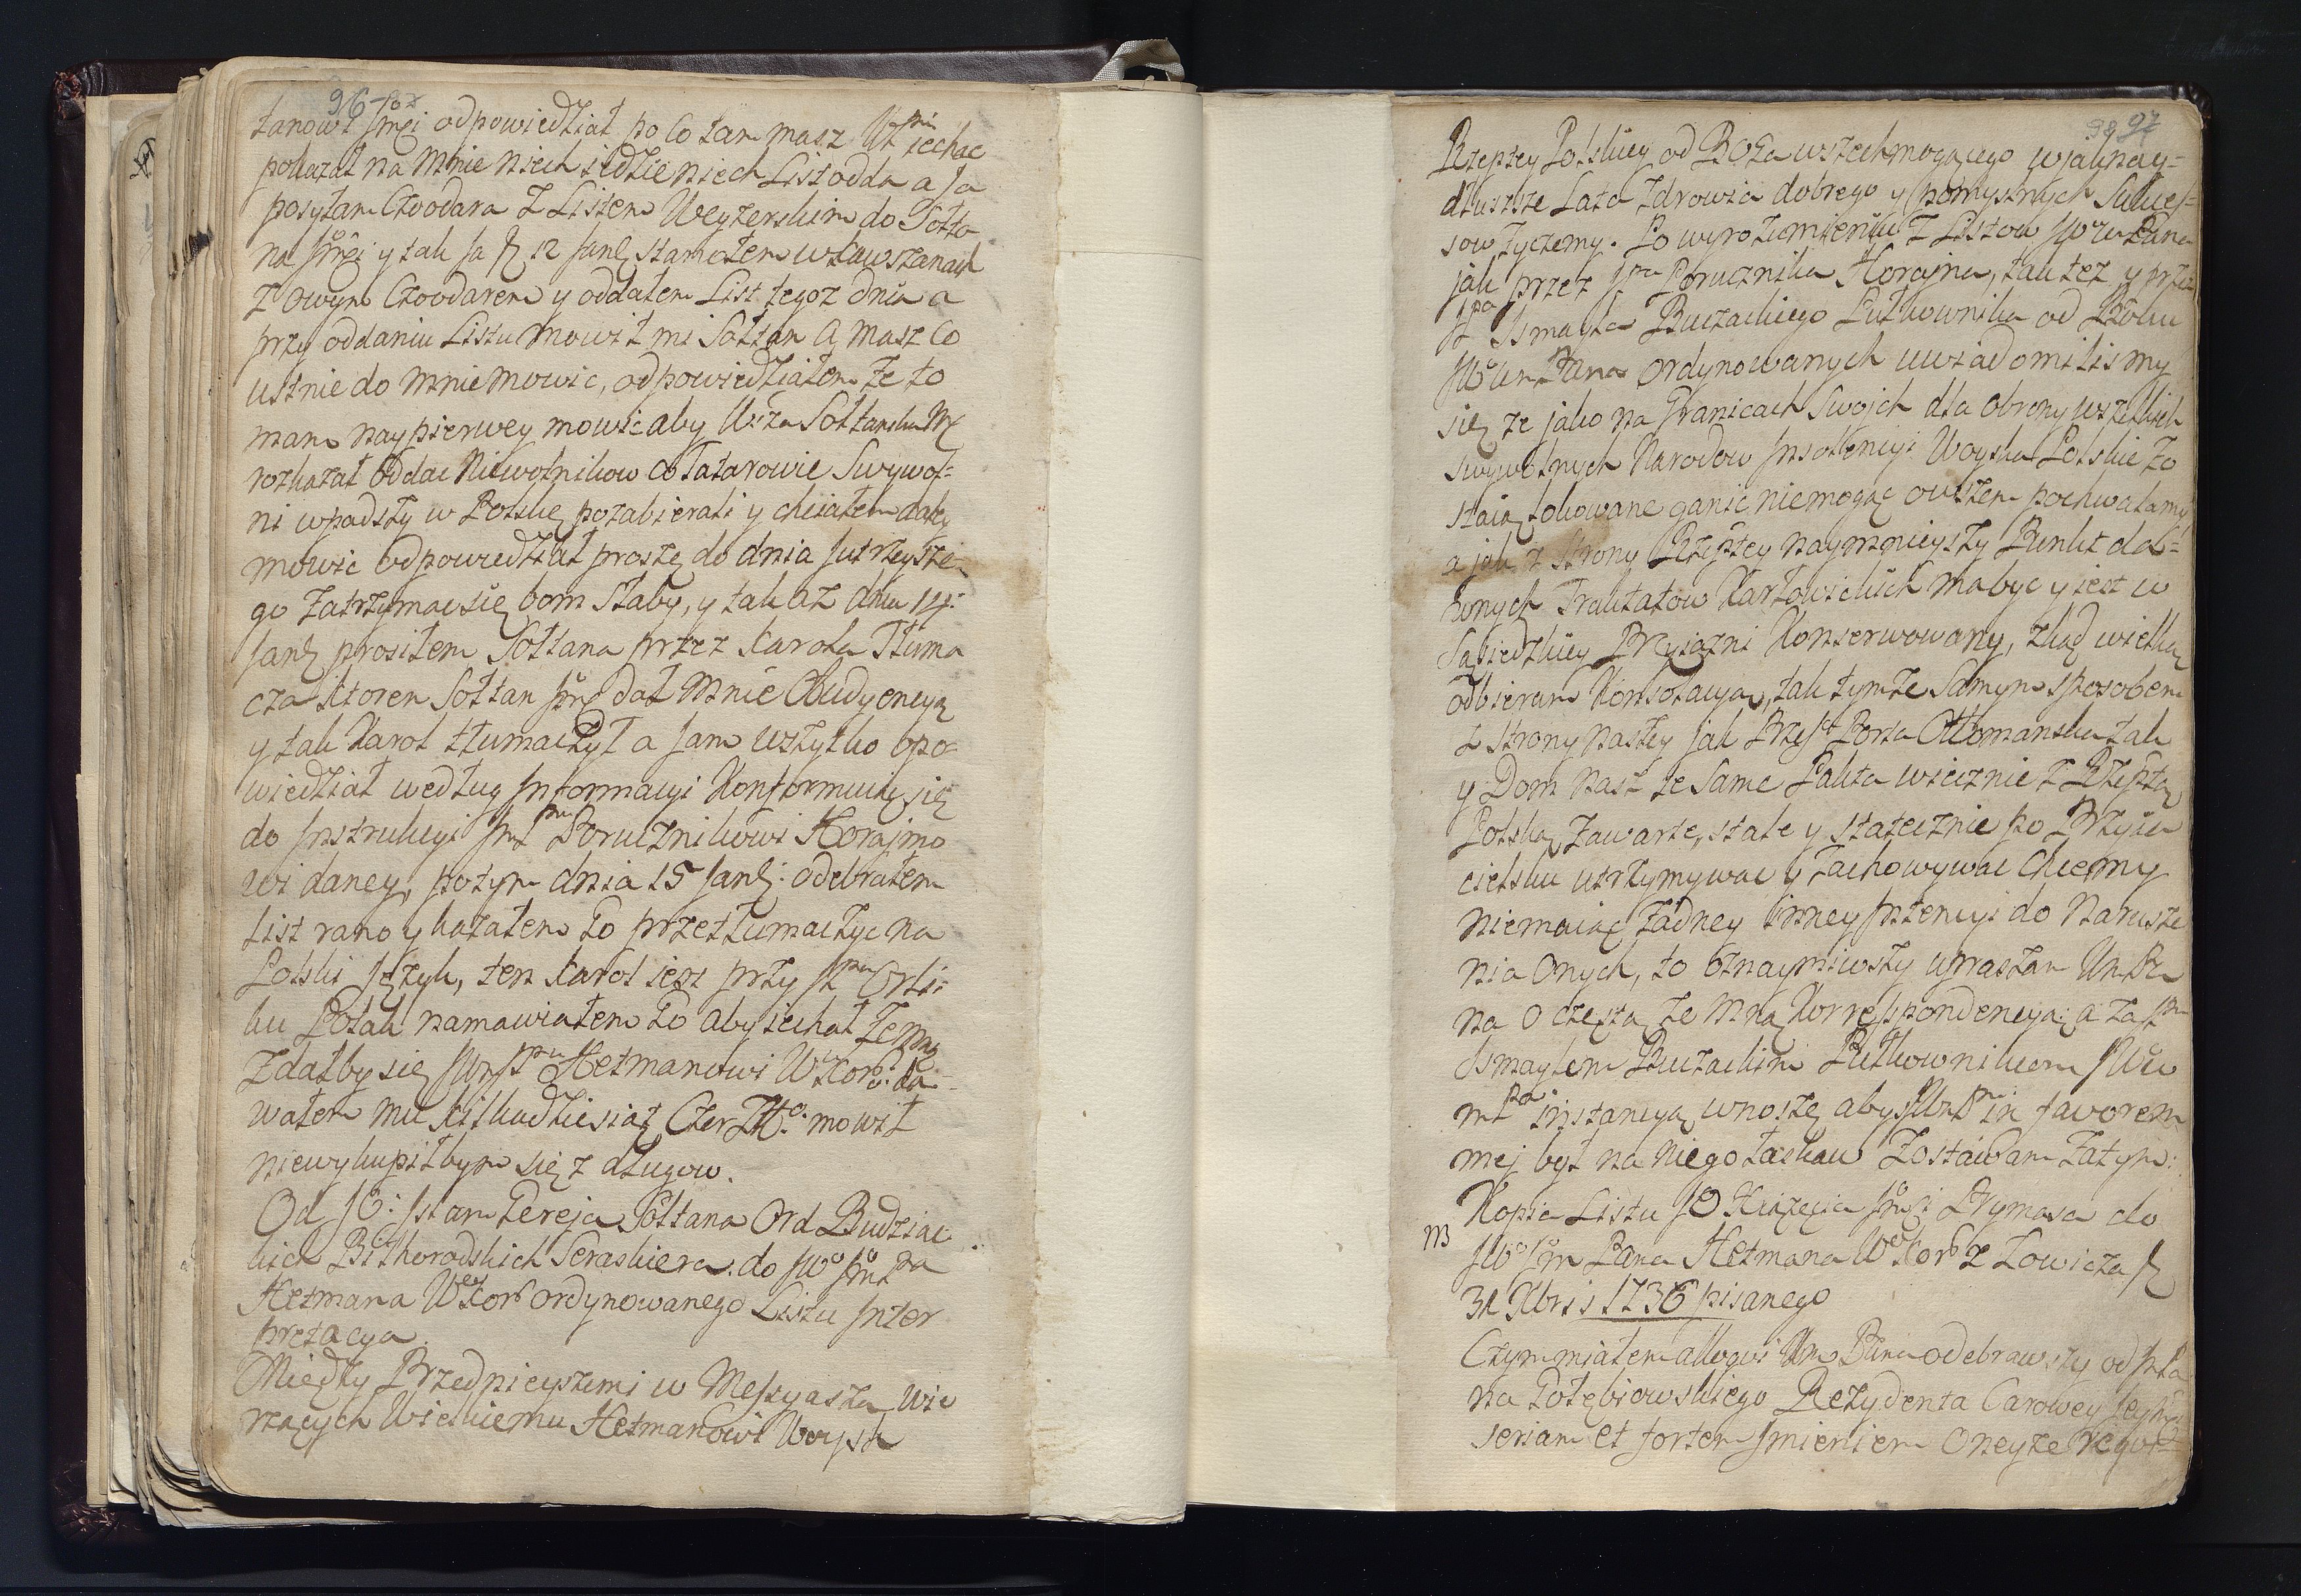 96
tanowi Jmci odpowiedział po co tam masz WPan iechac
pokazał na mnie niech iedzie niech List odda a ja
posyłam Czoodara z Listem Węgzerskim do Sołta
na Jmci y tak ja d 12 Jan stanołem w Kawszanach
z owym Czoodarem y oddałem List tegoz dnia a
przy oddaniu Listu mowił mi Sołtan a masz co
ustnie do mnie mowic, odpowiedziałem ze to
mam naypierwey mowic aby Wza Sołtanska M
rozkazał oddac Niewolnikow co Tatarowie Swywol=
ni wpadszy w Polskę pozabierali y chciałem daley
mowic odpowiedział proszę do dnia jutrzeysze
go zatrzymac się bom słaby, y tak az dnia 14.
Jan prosiłem Sołtana przez Karola Tłuma
cza ktoren Sołtan Jmc dał mnie Audyencyą
y tak Karol tłumaczył a jam wszytko opo
wiedział według Informacyi Konformuiąc się
do Instrukcyi JmP Porucznikowi Horajno
wi daney, potym dnia 15 Jan: odebrałem
list rano y kazałem go przetłumaczyc na
Polski Język, ten Karol iest przy JP Orli=
ku Polak namawiałem go aby iechał ze mną
zdałby się JWJP Hetmanowi WKor: da
wałem mu kilkadziesiąt Czer Złto: mowił
niewykupiłbym się z długow.
Od JO: Islam Gereja Sołtana Ord Budziac
kich Białhorodskich Seraskiera do JWo JmPa
Hetmana WKor ordynowanego Listu Inter
pretacya.
Między Przednieyszemi w Messyasza wie
rzących Wielkiemu Hetmanowi Woysk
97
Rzeptey Polskiey od Boga wszechmogącego w jaknay=
dłuzsze Lata zdrowia dobrego y pomyslnych Sukces=
sow zyczemy. Po wyrozumieniu z Listow JWo Wm Pana
jak przez JPa Porucznika Horajna, tak tez y przez
JPa Ismayła Buczackiego Pułkownika od Boku
JWo Wm Pana ordynowanych uwiadomilismy
się ze jako na Granicach Swojch dla obrony wszelkich
swywolnych Narodow Insolencyi Woyska Polskie zo
staią lokowane ganic niemogąc owszem pochwalamy
a jak z strony Rzeptey naymnieyszy Punkt daw=
wnych Traktatow Karłowickich ma byc y iest w
Sąsiedzkiey Przyiazni Konserwowany, zkąd wielką
odbieram Konsolacyą, tak tymze samym sposobem
z strony naszey jak Przes Porta Ottomanska tak
y Dom nasz te same Pakta wiecznie z Rzeptą
Polską zawarte, stale y statecznie po Przyia
cielsku utrzymywac y zachowywac chcemy
niemaiąc zadney inney Intencyi do narusze
nia onych, to oznaymiwszy upraszam WmPa
na o częstą ze mną Korrespondencyą: a za JPm
Ismayłem Buczackim Pułkownikiem JWo W
mPa instancyą wnoszę abys JWmP in favorem
mej był na niego łaskaw Zostawam zatym:
Kopia Listu JO Xiązęcia Jmci Prymasa do
JWo Jm Pana Hetmana W Kor z Łowicza d
31 Xbris 1736 pisanego
Czym miałem alloqui Wm Pana odebrawszy od JmPa
na Gołębiowskiego Rezydenta Carowey Jeymci
seriam et fortem imieniem Oneyze requi=